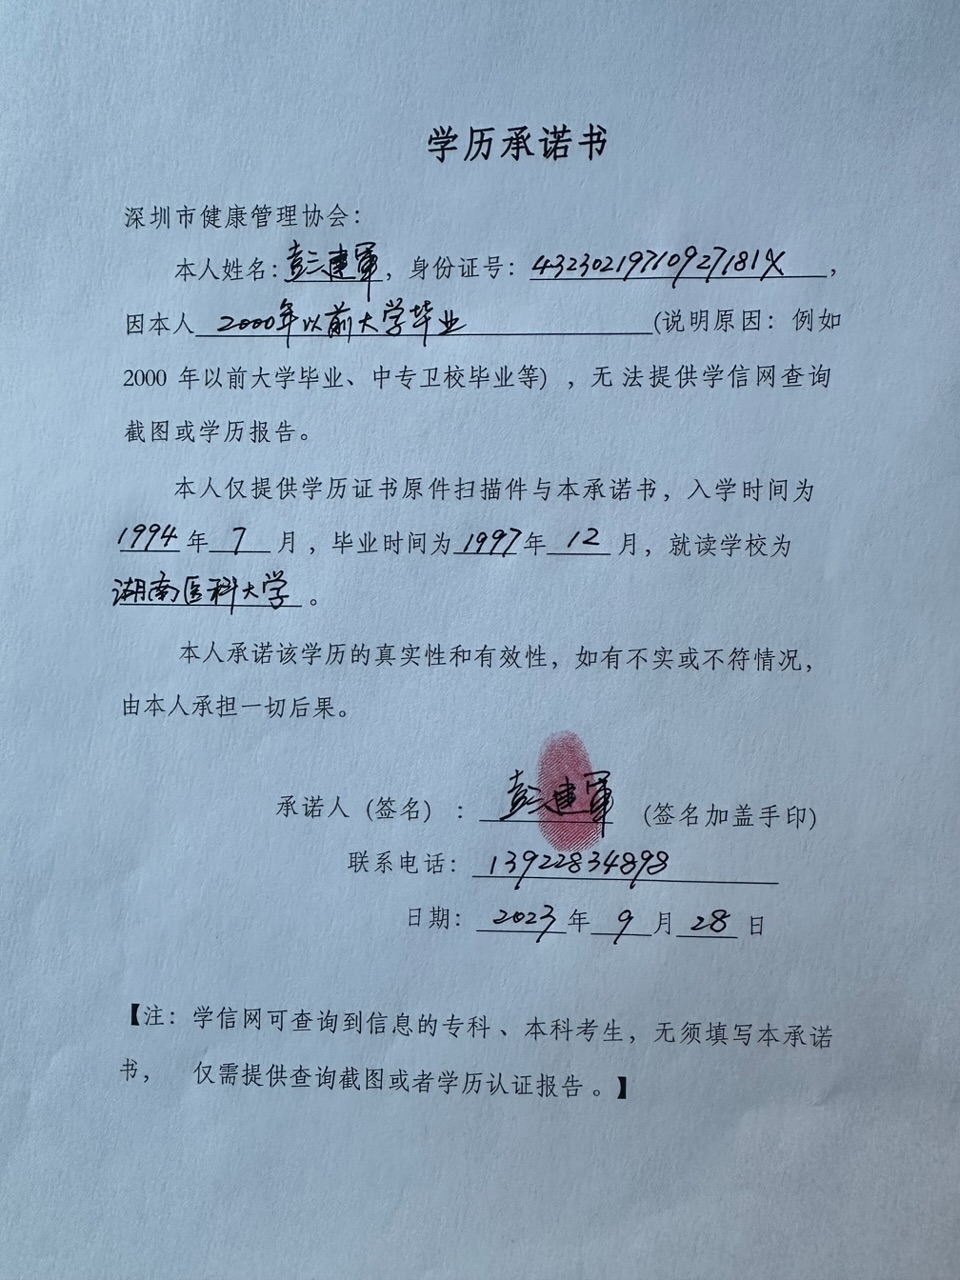 学历承诺书
深圳市健康管理协会：
本人姓名：彭建军，身份证号：43230219710927181X，
因本人2000年以前大学毕业(说明原因：例如
2000 年以前大学毕业、中专卫校毕业等），无法提供学信网查询
截图或学历报告。
本人仅提供学历证书原件扫描件与本承诺书，入学时间为
1994年7月，毕业时间为1997年12月，就读学校为
湖南医科大学。
本人承诺该学历的真实性和有效性，如有不实或不符情况，
由本人承担一切后果。
承诺人（签名）：彭建军 (签名加盖手印)
联系电话：13922834898
日期：2023年9月28日
【注：学信网可查询到信息的专科、本科考生，无须填写本承诺
书， 仅需提供查询截图或者学历认证报告。】